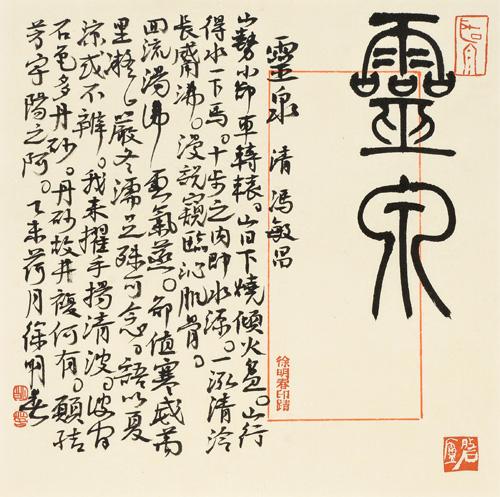 靈泉
靈泉 清 馮敏昌
山勢小卻車轉轅。山日下燒傾火盆。山行
得水一下馬。十步之内即水源。一泓清泠
長觱沸。漫說窺臨沁肌骨。
回流湯沸氣蒸。卻值寒威萬
里凝。嚴冬濡足殊可念。語以夏
涼或不辨。我來濯手揚清波。彼有
石色多丹砂。丹砂故井復何有。願結
茅宇陽之阿。乙未荷月徐明春
徐明春印蹟